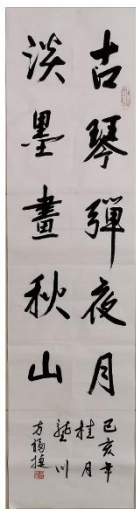 古琴彈夜月
淡墨畫秋山
己亥年
桂月
龍川